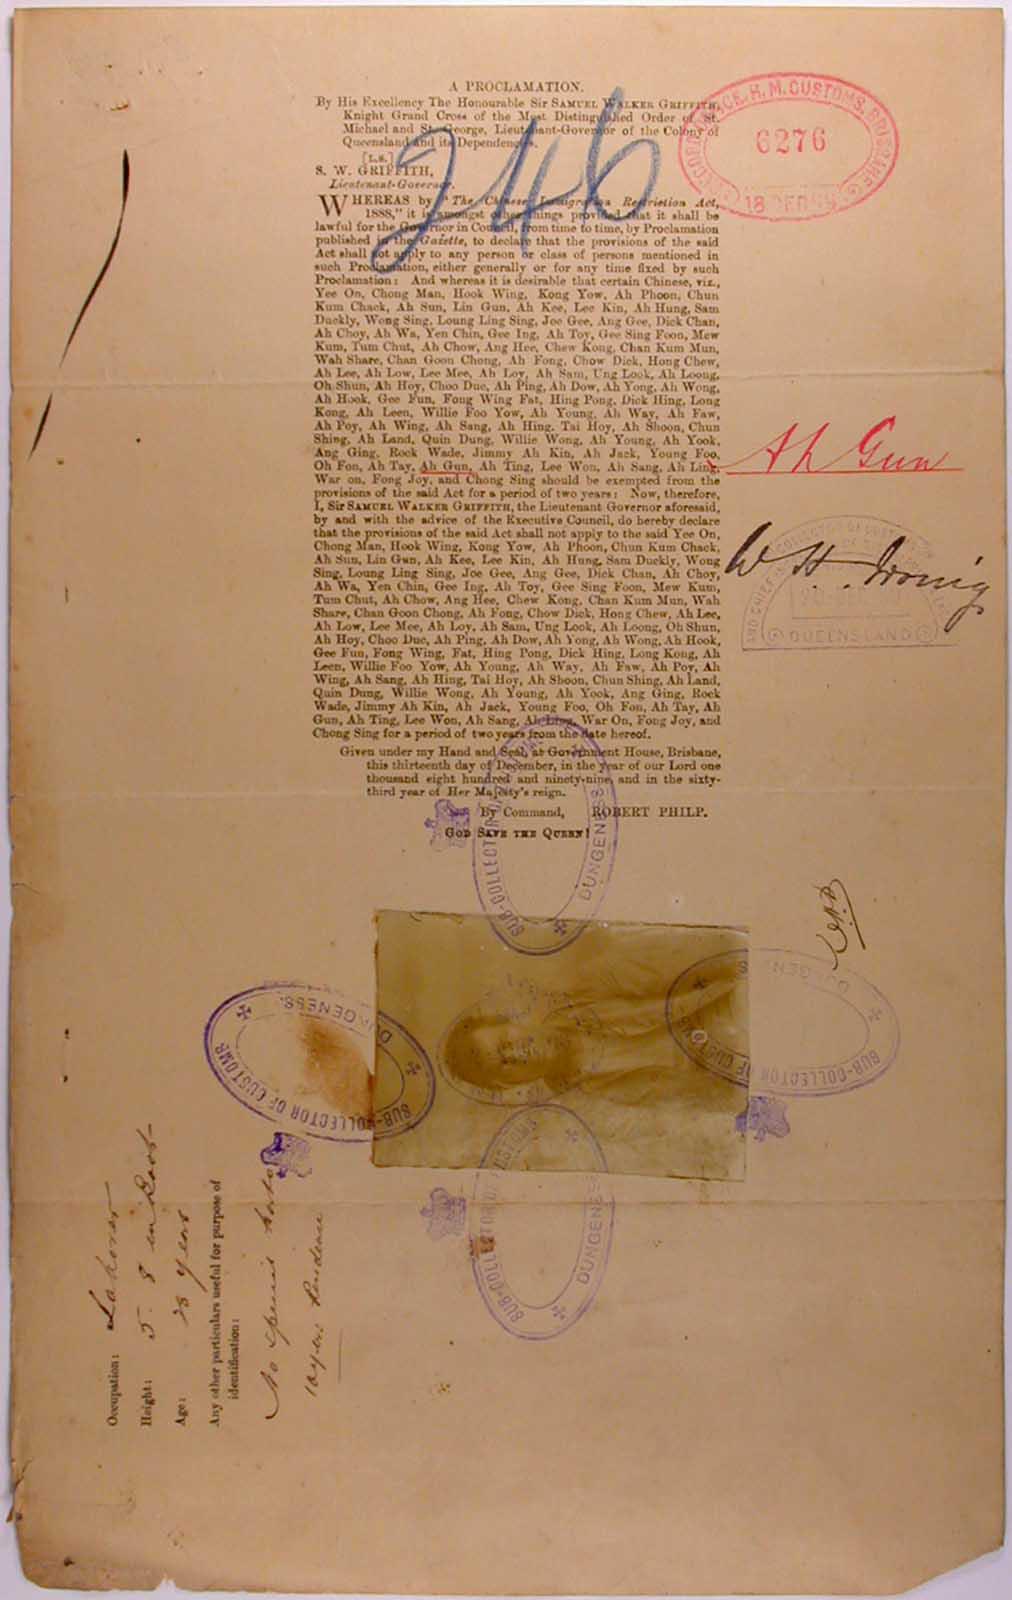 A PROCLAMATION.
By His Excellency The Honourable Sir SAMUEL WALKER GRIFFITH,
Knight Grand Cross of the Most Distinguished Order of St.
Michael and St. George, Lieutenant-Governor of the Colony of
Queensland and its Dependencies.
[L.S.]
S. W. GRIFFITH,
Lieutenant-Governor.
246
WHEREAS by "The Chinese Immigration Restriction Act,
1888," it is amongst other things provided that it shall be
lawful for the Governor in Council, from time to time, by Proclamation
published in the Gazette, to declare that the provisions of the said
Act shall not apply to any person or class of persons mentioned in
such Proclamation, either generally or for any time fixed by such
Proclamation: And whereas it is desirable that certain Chinese, viz.,
Yee On, Chong Man, Hook Wing, Kong Yow, Ah Phoon, Chun
Kum Chack, Ah Sun, Lin Gun, Ah Kee, Lee Kin, Ah Hung, Sam
Duckly, Wong Sing, Loung Ling Sing, Joe Gee, Ang Gee, Dick Chan,
Ah Choy, Ah Wa, Yen Chin, Gee Ing, Ah Toy, Gee Sing Foon, Mew
Kum, Tum Chut, Ah Chow, Ang Hee, Chew Kong, Chan Kum Mun,
Wah Share, Chan Goon Chong, Ah Fong, Chow Dick, Hong Chew,
Ah Lee, Ah Low, Lee Mee, Ah Loy, Ah Sam, Ung Look, Ah Loong,
Oh Shun, Ah Hoy, Choo Duc, Ah Ping, Ah Dow, Ah Yong, Ah Wong,
Ah Hook, Gee Fun, Fong Wing Fat, Hing Pong, Dick Hing, Long
Kong, Ah Leen, Willie Foo Yow, Ah Young, Ah Way, Ah Faw,
Ah Poy, Ah Wing, Ah Sang, Ah Hing, Tai Hoy, Ah Shoon, Chun
Shing, Ah Land, Quin Dung, Willie Wong, Ah Young, Ah Yook,
Ang Ging, Rock Wade, Jimmy Ah Kin, Ah Jack, Young Foo,
Oh Fon, Ah Tay, Ah Gun, Ah Ting, Lee Won, Ah Sang, Ah Ling,
War on, Fong Joy, and Chong Sing should be exempted from the
provisions of the said Act for a period of two years: Now, therefore,
I, Sir SAMUEL WALKER GRIFFITH, the Lieutenant Governor aforesaid,
by and with the advice of the Executive Council, do hereby declare
that the provisions of the said Act shall not apply to the said Yee On,
Chong Man, Hook Wing, Kong Yow, Ah Phoon, Chun Kum Chack,
Ah Sun, Lin Gun, Ah Kee, Lee Kin, Ah Hung, Sam Duckly, Wong
Sing, Loung Ling Sing, Joe Gee, Ang Gee, Dick Chan, Ah Choy,
Ah Wa, Yen Chin, Gee Ing, Ah Toy, Gee Sing Foon, Mew Kum,
Tum Chut, Ah Chow, Ang Hee, Chew Kong, Chan Kum Mun, Wah
Share, Chan Goon Chong, Ah Fong, Chow Dick, Hong Chew, Ah Lee,
Ah Low, Lee Mee, Ah Loy, Ah Sam, Ung Look, Ah Loong, Oh Shun,
Ah Hoy, Choo Duc, Ah Ping, Ah Dow, Ah Yong, Ah Wong, Ah Hook,
Gee Fun, Fong Wing, Fat, Hing Pong, Dick Hing, Long Kong, Ah
Leen, Willie Foo Yow, Ah Young, Ah Way, Ah Faw, Ah Poy, Ah
Wing, Ah Sang, Ah Hing, Tai Hoy, Ah Shoon, Chun Shing, Ah Land,
Quin Dung, Willie Wong, Ah Young, Ah Yook, Ang Ging, Rock
Wade, Jimmy Ah Kin, Ah Jack, Young Foo, Oh Fon, Ah Tay, Ah
Gun, Ah Ting, Lee Won, Ah Sang, Ah Ling, War On, Fong Joy, and
Chong Sing for a period of two years from the date hereof.
Given under my Hand and Seal, at Government House, Brisbane,
this thirteenth day of December, in the year of our Lord one
thousand eight hundred and ninety-nine, and in the sixty-
third year of Her Majesty's reign.
By Command, ROBERT PHILP.
GOD SAVE THE QUEEN!
H. M. CUSTOMS, BRISBANE
6276
18 DEC 99
Ah Gun
W H Irving
QUEENSLAND
SUB-COLLECTOR OF CUSTOMS
DUNGENESS
SUB-COLLECTOR OF CUSTOMS
DUNGENESS.
SUB-COLLECTOR OF CUSTOMS
DUNGENESS
SUB-COLLECTOR OF CUSTOMS
DUNGENESS
Occupation: Laborer
Height: 5. 8 in Boots
Age: 28 years
Any other particulars useful for purpose of
identification:
No special marks
10 years Residence